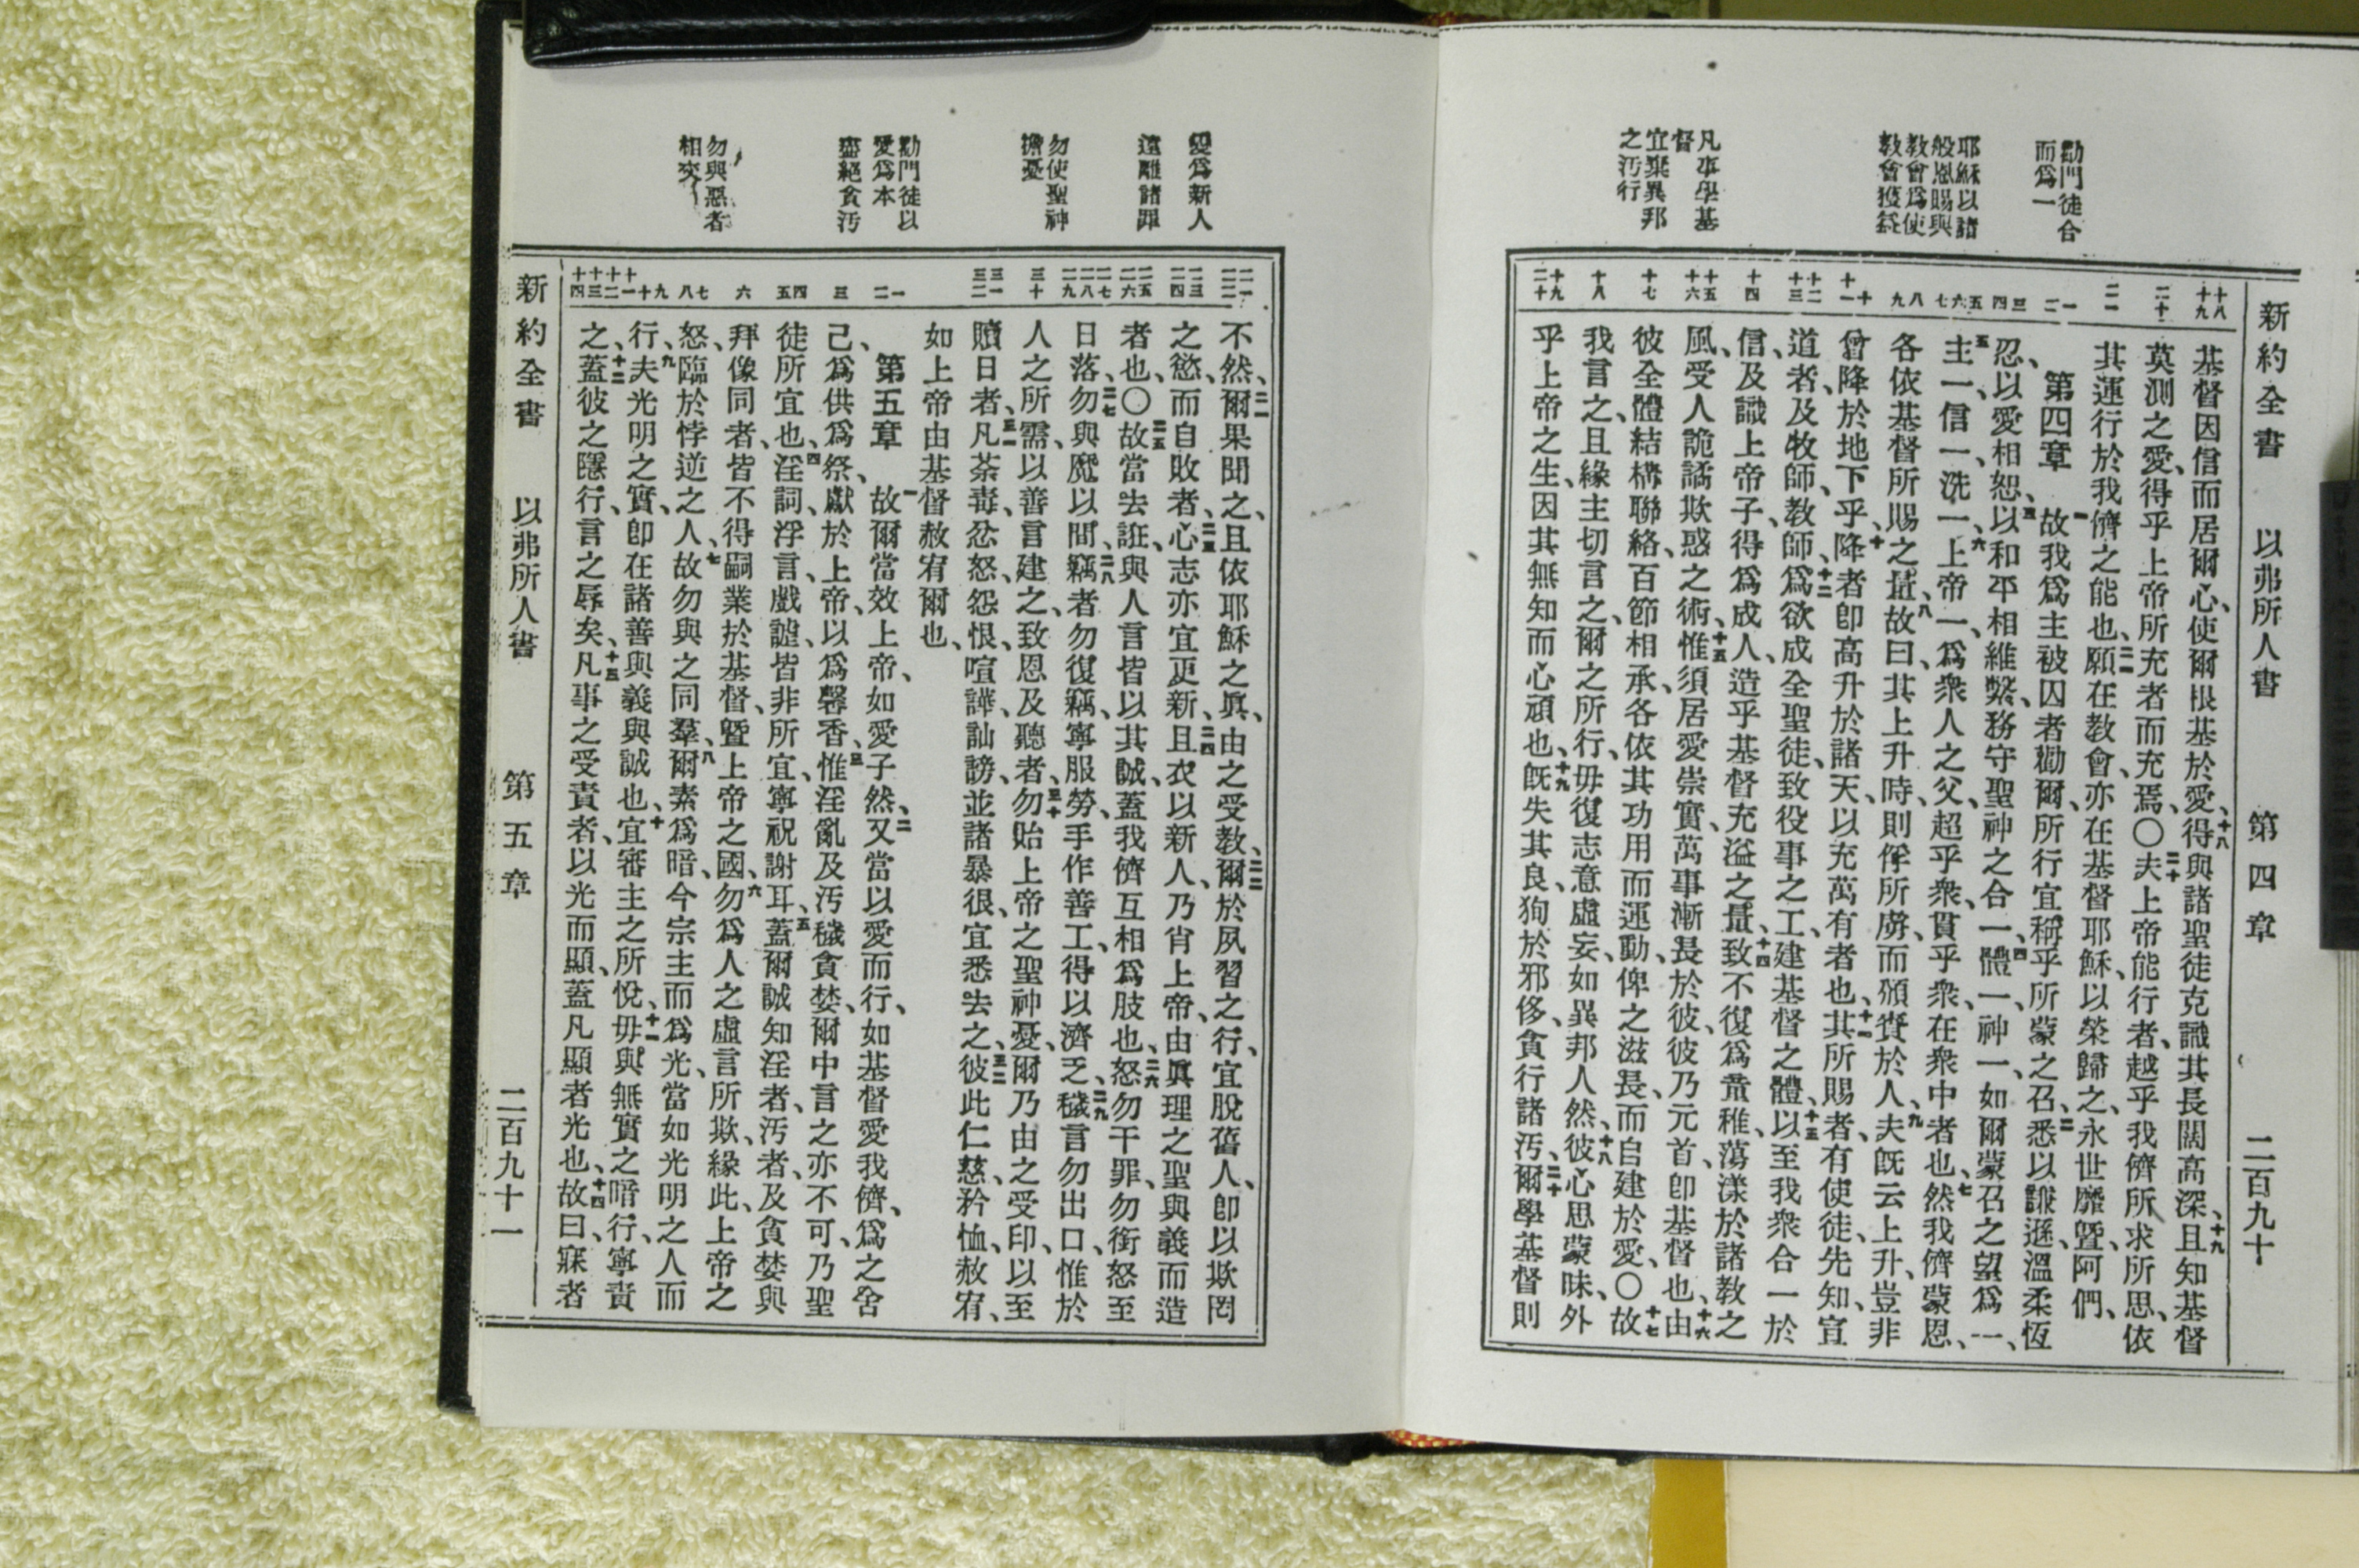 新約全書 以弗所人書 第四章 二百九十
勸門徒合
而爲一
耶穌以諸
般恩賜與
教會爲使
教會獲益
凡事學基
督
宜棄異邦
之汚行
十八 十九
二十
二一
一 二
三 四
五 六 七
八 九
十 十一
十二 十三
十四
十五 十六
十七
十八
十九 二十
基督因信而居爾心、使爾根基於愛、十八得與諸聖徒克識其長闊高深、十九且知基督
莫測之愛、得乎上帝所充者而充焉、〇二十夫上帝能行者、越乎我儕所求所思、依
其運行於我儕之能也、二一願在教會、亦在基督耶穌、以榮歸之、永世靡曁、阿們、
第四章 一故我爲主被囚者勸爾、所行宜稱乎所蒙之召、二悉以謙遜、溫柔恆
忍、以愛相恕、三以和平相維繫、務守聖神之合一、四體一、神一、如爾蒙召之望爲一、
五主一、信一、洗一、六上帝一、爲衆人之父、超乎衆、貫乎衆、在衆中者也、七然我儕蒙恩、
各依基督所賜之量、八故曰、其上升時、則俘所虜、而頒賚於人、九夫旣云上升、豈非
曾降於地下乎、十降者卽高升於諸天、以充萬有者也、十一其所賜者、有使徒、先知、宣
道者、及牧師、教師、十二爲欲成全聖徒、致役事之工、建基督之體、十三以至我衆合一於
信、及識上帝子、得爲成人、造乎基督充溢之量、十四致不復爲童稚、蕩漾於諸教之
風、受人詭譎欺惑之術、十五惟須居愛崇實、萬事漸長於彼、彼乃元首、卽基督也、十六由
彼全體結構聯絡、百節相承、各依其功用而運動、俾之滋長、而自建於愛、〇十七故
我言之、且緣主切言之、爾之所行、毋復志意虛妄、如異邦人然、十八彼心思蒙昧、外
乎上帝之生、因其無知而心頑也、十九旣失其良、狥於邪侈、貪行諸汚、二十爾學基督則
愛爲新人
遠離諸罪
勿使聖神
擔憂
勸門徒以
愛爲本
盡絕貪汚
勿與惡者
相交
二一 二二
二三 二四
二五 二六
二七 二八 二九
三十
三一 三二
一 二
三
四 五
六
七 八
九 十 十一 十二 十三 十四
不然、二一爾果聞之、且依耶穌之眞、由之受教、二二爾於夙習之行、宜脫舊人、卽以欺罔
之慾、而自敗者、二三心志亦宜更新、二四且衣以新人、乃肖上帝、由眞理之聖與義而造
者也、〇二五故當去誑、與人言皆以其誠、蓋我儕互相爲肢也、二六怒勿干罪、勿銜怒至
日落、二七勿與魔以間、二八竊者勿復竊、寧服勞、手作善工、得以濟乏、二九穢言勿出口、惟於
人之所需、以善言建之、致恩及聽者、三十勿貽上帝之聖神憂、爾乃由之受印、以至
贖日者、三一凡荼毒、忿怒、怨恨、喧譁、訕謗、並諸暴很、宜悉去之、三二彼此仁慈、矜恤、赦宥、
如上帝由基督赦宥爾也、
第五章 一故爾當效上帝、如愛子然、二又當以愛而行、如基督愛我儕、爲之舍
己、爲供爲祭、獻於上帝、以爲馨香、三惟淫亂及汚穢貪婪、爾中言之亦不可、乃聖
徒所宜也、四淫詞、浮言、戲謔、皆非所宜、寧祝謝耳、五蓋爾誠知淫者、汚者、及貪婪與
拜像同者、皆不得嗣業於基督、曁上帝之國、六勿爲人之虛言所欺、緣此、上帝之
怒、臨於悖逆之人、七故勿與之同羣、八爾素爲暗、今宗主而爲光、當如光明之人而
行、九夫光明之實、卽在諸善與義與誠也、十宜審主之所悅、十一毋與無實之暗行、寧責
之、十二蓋彼之隱行、言之辱矣、十三凡事之受責者、以光而顯、蓋凡顯者光也、十四故曰、寐者
新約全書 以弗所人書 第五章 二百九十一